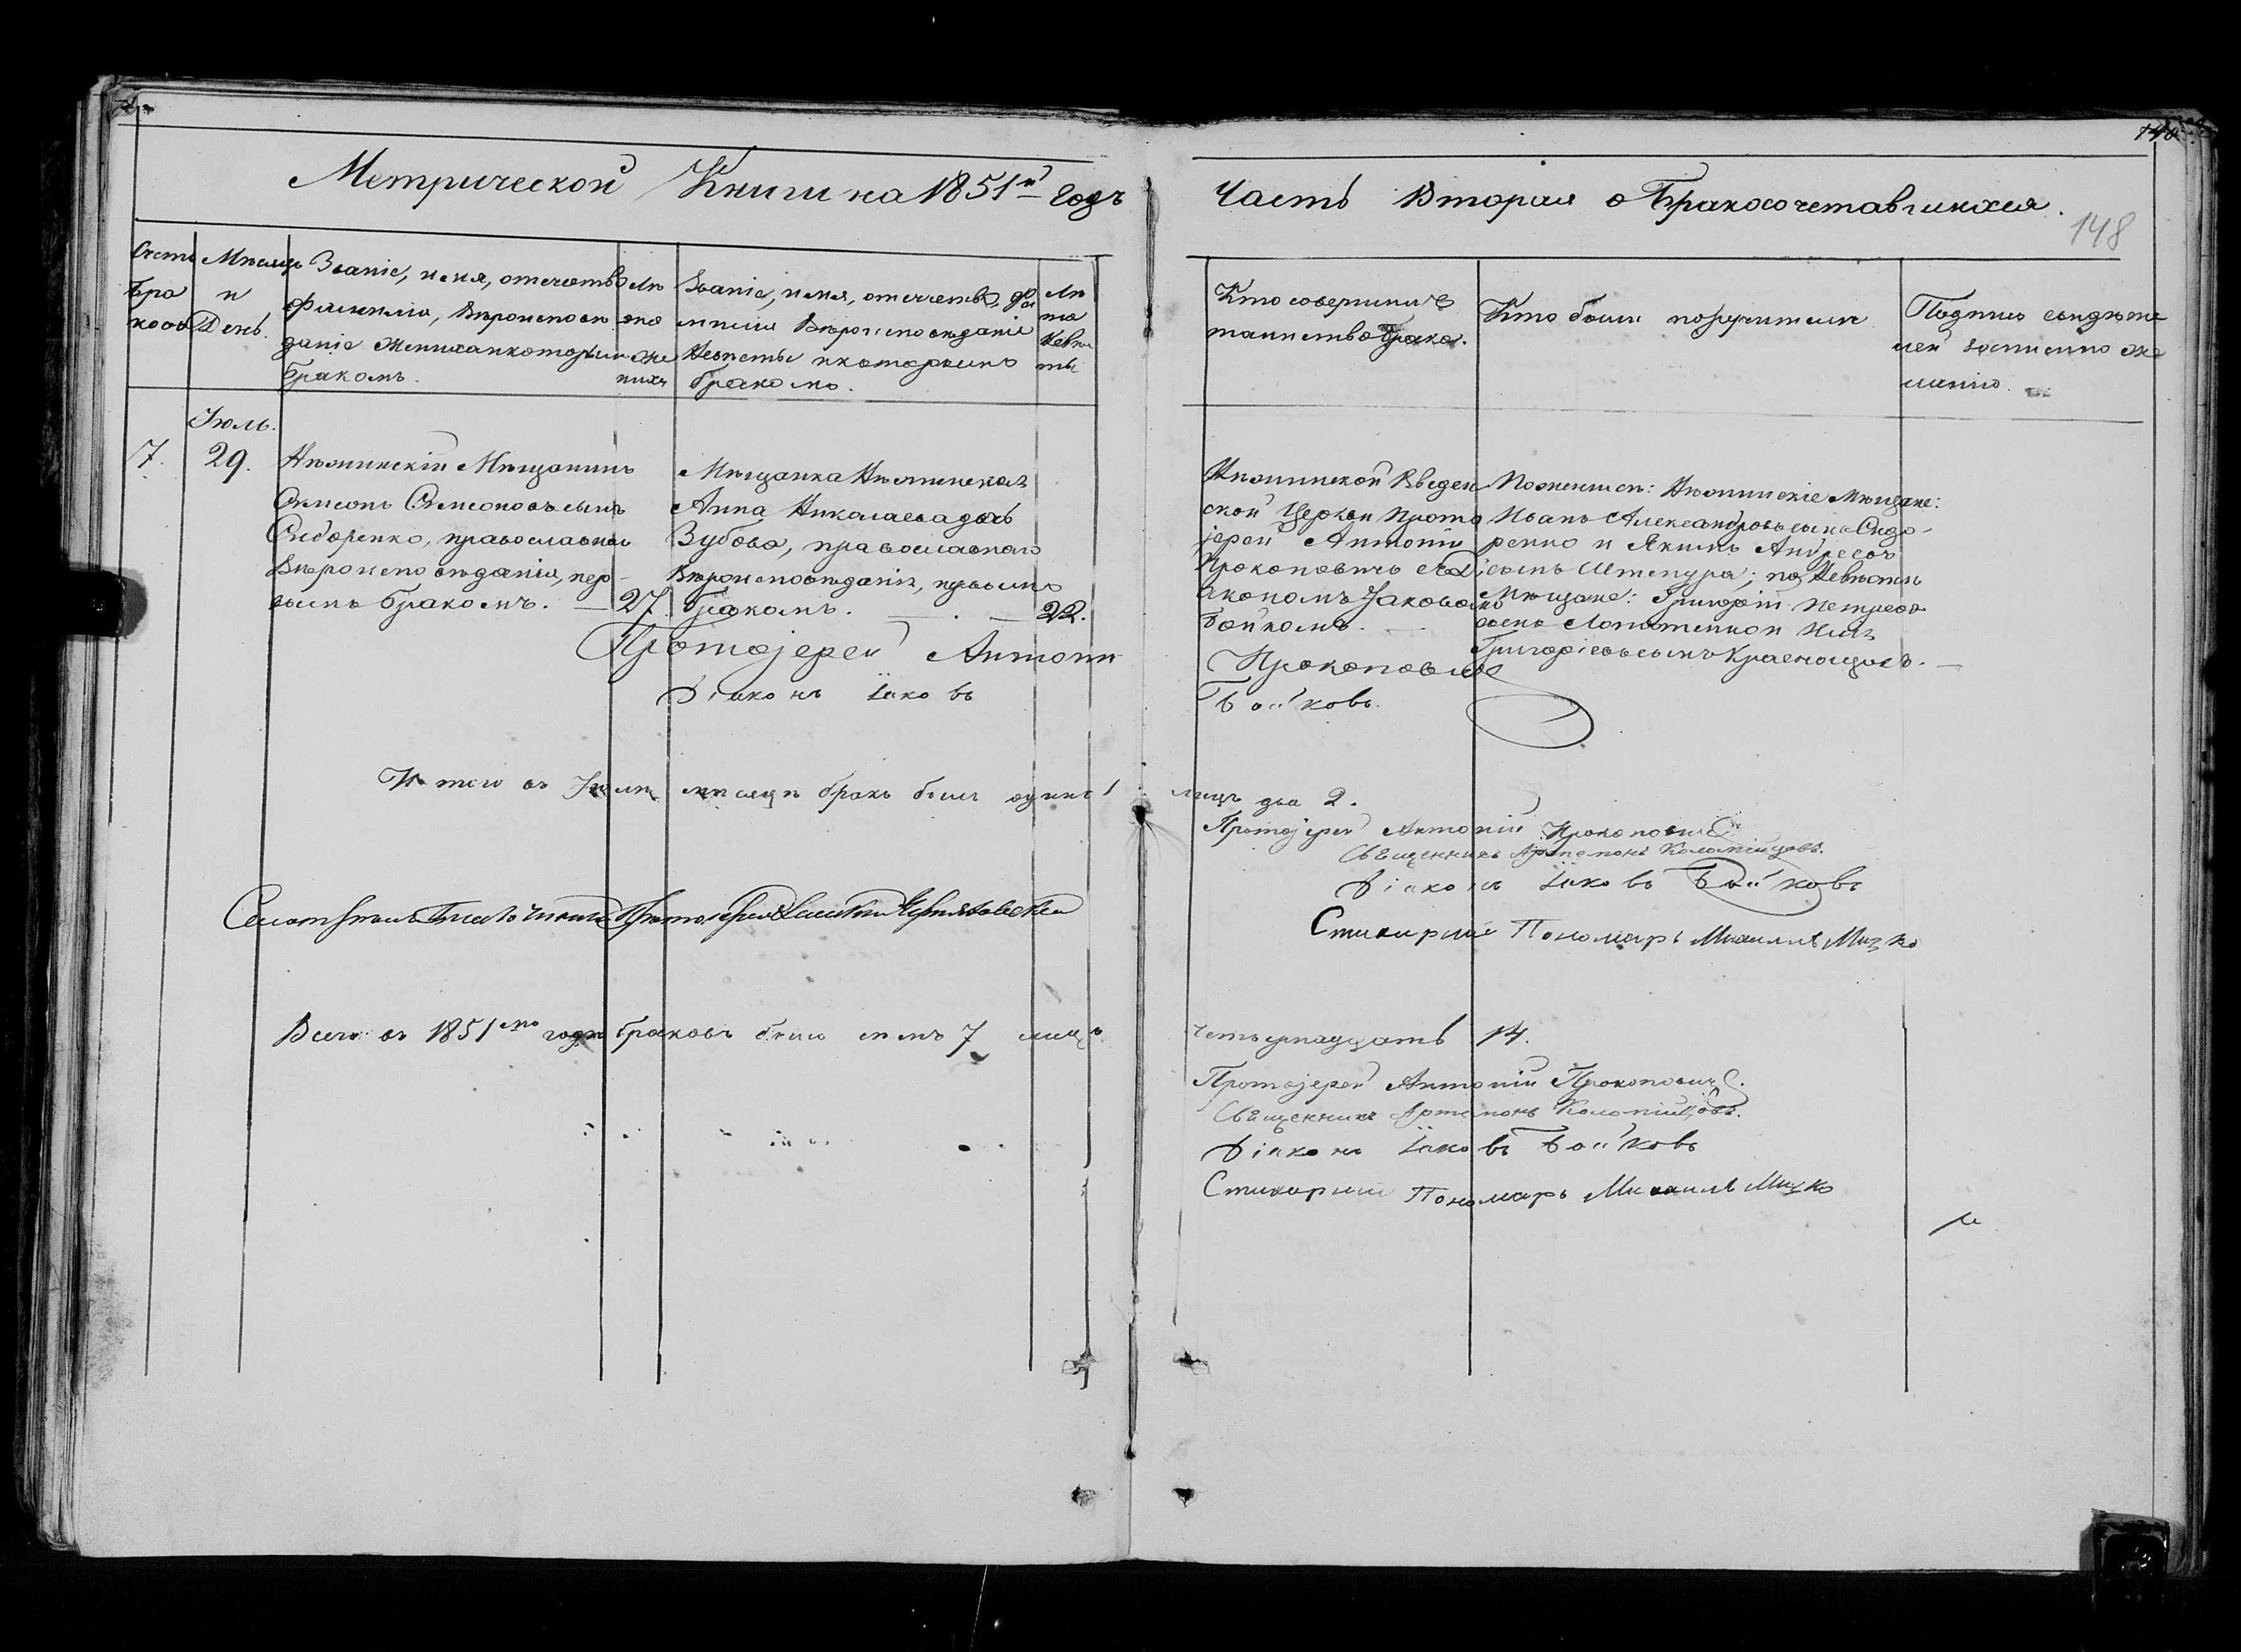 148
Метрической Книги на 1851й годъ
Часть Вторая о Бракосочетавшихся.
148
Счетъ Браковъ
Мѣсяцъ и День.
Званіе, имя, отечество
фамилія, Вѣроисповѣ
даніе жениха которым
бракомъ.
Лѣ
та
же
ниха
Званіе, имя, отечество, фа
милія Вѣроисповѣданіе
Невѣсты и которымъ
бракомъ.
Лѣ
та
Невѣс
ты
Кто совершилъ
таинство брака.
Кто были поручители
Подпись свидѣте
лей
ланію.
Іюль.
7.
29.
Нѣжинскій Мѣщанинъ
Симеонъ Симеоновъ сынъ
Сидоренко, православнаго
Вѣроисповѣданія, пер-
вымъ бракомъ. — 27.
Мѣщанка Нѣжинская
Анна Николаева дочь
Зубова, православнаго
Вѣроисповѣданія, первымъ
бракомъ. — . — 22.
Нѣжинской Введен
ской Церкви Прото
іерей Антоній
Прокоповичъ съ Ді
акономъ Іаковомъ
Бойкомъ.
По женихѣ: Нѣжинскіе Мѣщане:
Иванъ Александровъ сынъ Сидо-
ренко и Якимъ Андреевъ
сынъ Шепура; по Невѣстѣ
Мѣщане: Григорій Петровъ
сынъ
Григоріевъ сынъ
Протоіерей Антоній Прокоповичъ
Діаконъ Іаковъ Бойковъ.
Итого въ Іюлѣ мѣсяцѣ бракъ былъ одинъ 1 лицъ два 2.
Протоіерей Антоній Прокоповичъ
Священникъ Артемонъ Коломійцовъ.
Діаконъ Іаковъ Бойковъ
Стихарный Пономарь Михаилъ Мицко
Всего въ 1851мъ годѣ браковъ было семь 7 лицъ четырнадцать 14.
Протоіерей Антоній Прокоповичъ.
Священникъ Артемонъ Коломійцовъ.
Діаконъ Іаковъ Бойковъ
Стихарный Пономарь Михаилъ Мицко